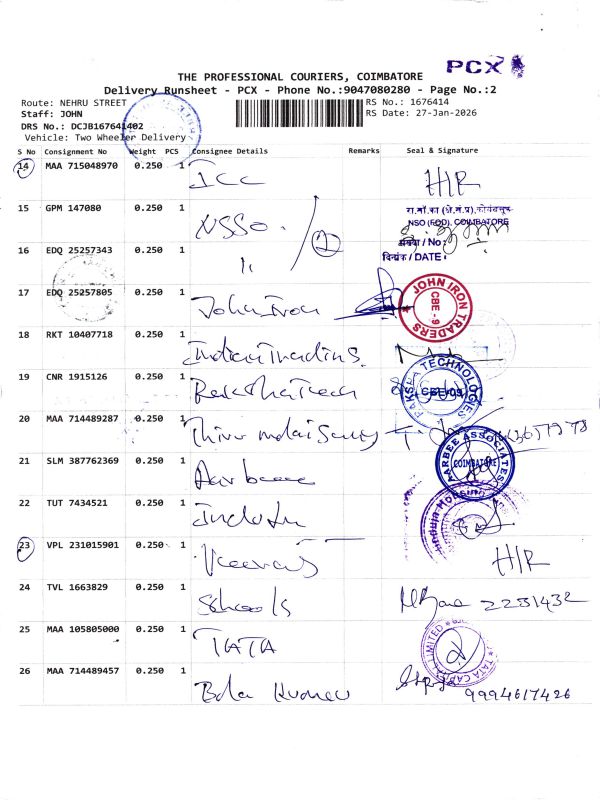 PCX
THE PROFESSIONAL COURIERS, COIMBATORE
Delivery Runsheet - PCX - Phone No.:9047080280 - Page No.:2
Route: NEHRU STREET RS No.: 1676414
Staff: JOHN RS Date: 27-Jan-2026
DRS No.: DCJB167641402
Vehicle: Two Wheeler Delivery
S No Consignment No Weight PCS Consignee Details Remarks Seal & Signature
14 MAA 715048970 0.250 1 ICC H/R
15 GPM 147080 0.250 1 NSSO.
NSO (FOD), COIMBATORE
16 EDQ 25257343 0.250 1 संख्या / No
दिनांक / DATE :
17 EDQ 25257805 0.250 1 John Iron JOHN IRON TRADERS CBE-9
18 RKT 10407718 0.250 1 Indian Trading
19 CNR 1915126 0.250 1 Raksha Tech RAKSHA TECHNOLOGIES
20 MAA 714489287 0.250 1
21 SLM 387762369 0.250 1 Aarbee AARBEE ASSOCIATES COIMBATORE
22 TUT 7434521 0.250 1
23 VPL 231015901 0.250 1 H/R
24 TVL 1663829 0.250 1 Schools 2231432
25 MAA 105805000 0.250 1 TATA TATA CAPITAL LIMITED
26 MAA 714489457 0.250 1 Bala Kumar 9994617426